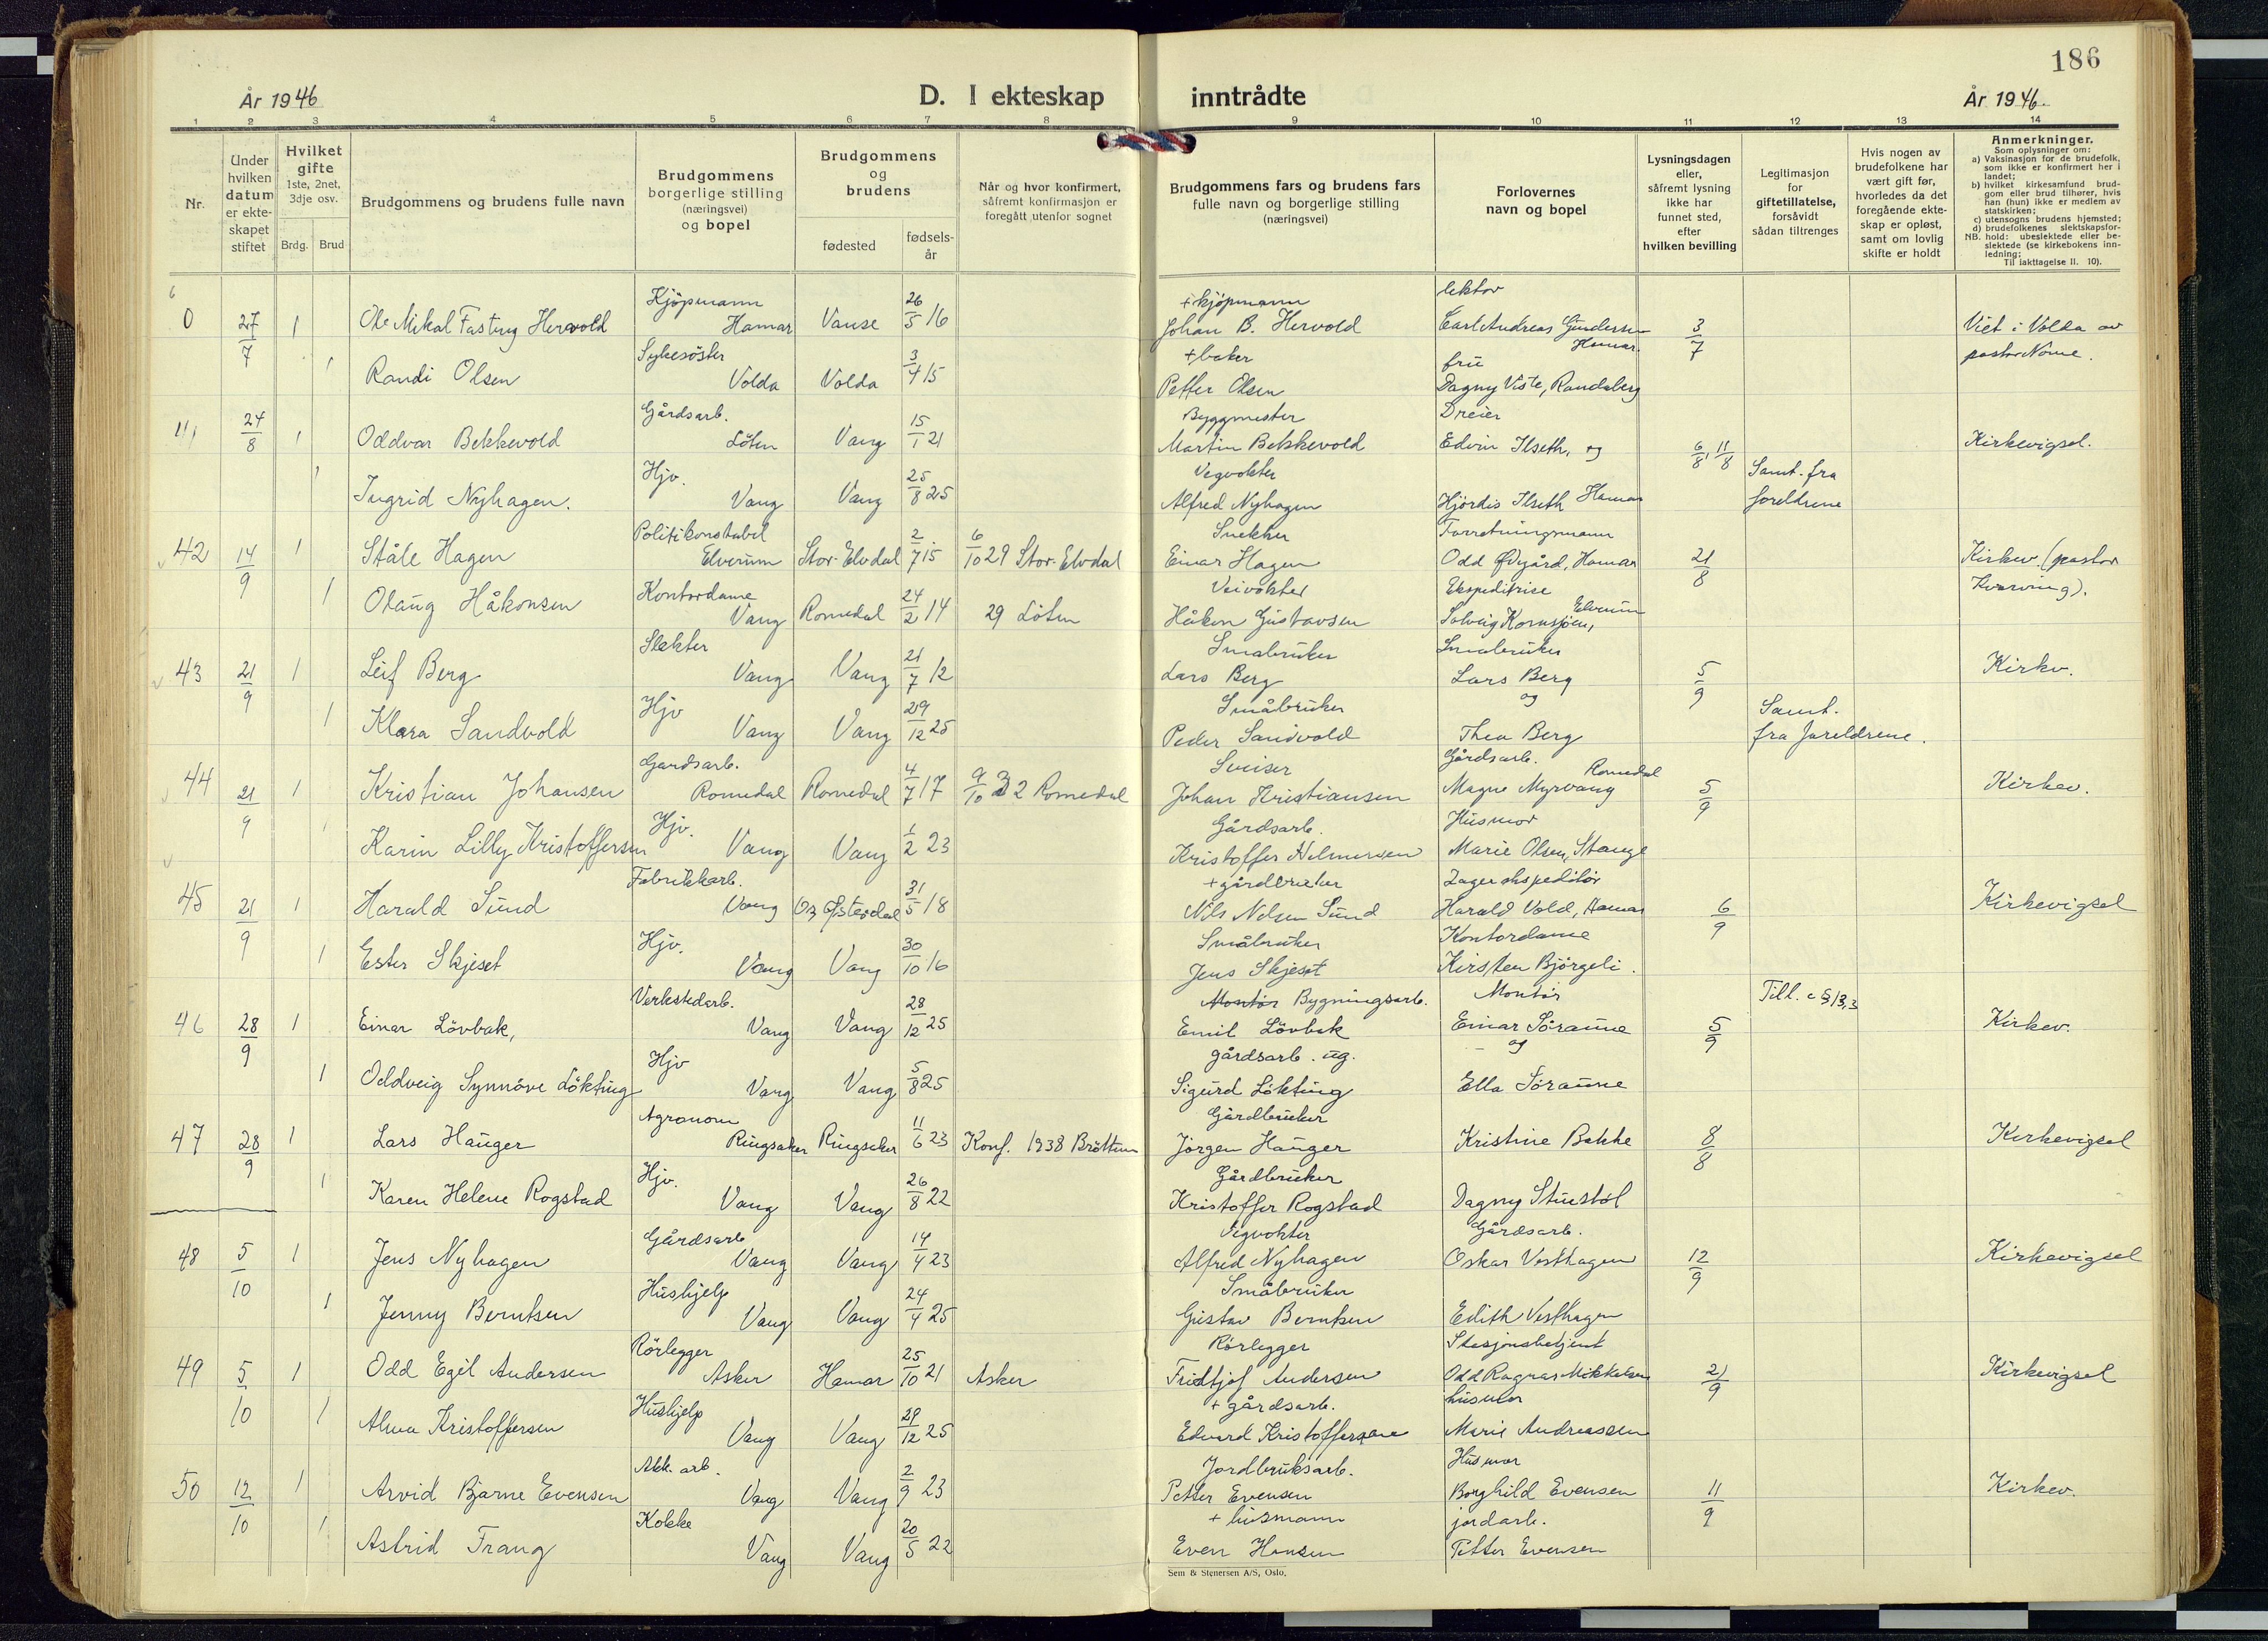 186
År 1946
D. I ekteskap inntrådte
År 1946
1 2 3 4 5 6 7 8 9 10 11 12 13 14
Nr.
Under hvilken datum er ekteskapet stiftet
Hvilket gifte 1ste, 2net, 3dje osv.
Brdg. Brud
Brudgommens og brudens fulle navn
Brudgommens borgerlige stilling (næringsvei) og bopel
Brudgommens og brudens
fødested
fødselsår
Når og hvor konfirmert, såfremt konfirmasjon er foregått utenfor sognet
Brudgommens fars og brudens fars fulle navn og borgerlige stilling (næringsvei)
Forlovernes navn og bopel
Lysningsdagen eller, såfremt lysning ikke har funnet sted, efter hvilken bevilling
Legitimasjon for giftetillatelse, forsåvidt sådan tiltrenges
Hvis nogen av brudefolkene har vært gift før, hvorledes da det foregående ekteskap er opløst, samt om lovlig skifte er holdt
Anmerkninger.
Som oplysninger om:
a) Vaksinasjon for de brudefolk, som ikke er konfirmert her i landet;
b) hvilket kirkesamfund brudgom eller brud tilhører, hvis han (hun) ikke er medlem av statskirken;
c) utensogns brudens hjemsted;
d) brudefolkenes slektskapsforhold: ubeslektede eller beslektede (se kirkebokens innledning;
NB.
Til iakttagelse II. 10).
Kjøpmann 26 + kjøpmann lektor
0 27/7 1 Ole Mikal Fasting Hervold Hamar Vanse 5 16 Johan B. Hervold Carl Andreas Gundersen Hamar. 3/7 Viet i Volda av
Sykesöster 3 + baker frü pastor Nome.
1 Randi Olsen Volda Volda 4 15 Petter Olsen Dagny Viste, Randaberg
Gårdsarb. 15 Byggmester Dreier
24/8 1 Oddvar Bekkevold Löten Vang 1 21 Martin Bekkevold Edvin Ilseth, og 6/8, 11/8 Kirkevigsel.
Hjv. 25 Vegvokter Samt. fra
1 Ingrid Nyhagen. Vang Vang 8 25 Alfred Nyhagen Hjördis Ilseth Hamar foreldrene
Politikonstabel 2 6 Snekker Forretningsmann
42 14/9 1 Ståle Hagen Elverum Stor-Elvdal 7 15 10 29 Stor-Elvdal Einar Hagen Odd Øvgård, Hamar 21/8 Kirkev. (pastor
Kontordame 24 Veivokter Ekspeditrise Kvarving).
1 Olaug Håkonsen Vang Romedal 2 14 29 Löten Håkon Gustavsen Solveig Kornsjøen, Elverum
Slakter 21 Småbruker Småbruker
43 21/9 1 Leif Berg Vang Vang 7 12 Lars Berg Lars Berg 5/9 Kirkv.
Hjv 29 Småbruker og Samt.
1 Klara Sandvold Vang Vang 12 25 Peder Sandvold Thea Berg fra foreldrene.
Gardsarb. 4 9 Sveiser Gårdsarb. Romedal
44 21/9 1 Kristian Johansen Romedal Romedal 7 17 10 32 Romedal Johan Kristiansen Magne Myrvang 5/9 Kirkev.
Hjv. 1 Gårdsarb. Husmor
1 Karin Lilly Kristoffersen Vang Vang 2 23 Kristoffer Helmersen Marie Olsen, Stange
Fabrikkarb. 31 + gårdbruker Lagerekspeditör
45 21/9 1 Harald Sund Vang Os Østerdal 5 18 Nils Nelsen Sund Harald Vold, Hamar 6/9 Kirkevigsel
Hjv. 30 Småbruker Kontordame
1 Ester Skjeset Vang Vang 10 16 Jens Skjeset Kirsten Björgeli.
Verkstedarb. 28 Montör Bygningsarb. Montör Till. e § 13,3
46 28/9 1 Einar Lövbak, Vang Vang 12 25 Emil Lövbak Einar Söraune 5/9 Kirkev.
Hjv 5 gårdsarb. ug. og
1 Oddveig Synnöve Lökting Vang Vang 8 25 Sigurd Lökting Ella Söraune
Agronom 11 Gårdbruker
47 28/9 1 Lars Hauger Ringsaker Ringsaker 6 23 Konf. 1938 Bröttum Jörgen Hauger Kristine Bakke 8/8 Kirkevigsel
Hjv. 26 Gårdbruker
1 Karen Helene Rogstad Vang Vang 8 22 Kristoffer Rogstad Dagny Stuestöl
Gårdsarb 14 Vegvokter Gårdsarb.
48 5/10 1 Jens Nyhagen Vang Vang 4 23 Alfred Nyhagen Oskar Vesthagen 12/9 Kirkevigsel
Hushjelp 24 Småbruker
1 Jenny Berntsen Vang Vang 4 25 Gustav Berntsen Edith Vesthagen
Rörlegger 25 Rörlegger Stasjonsbetjent
49 5/10 1 Odd Egil Andersen Asker Hamar 10 21 Asker Fridtjof Andersen Odd Ragnar Mikkelsen 21/9 Kirkevigsel
Hushjelp 29 + gårdsarb. husmor
1 Alma Kristoffersen Vang Vang 12 25 Edvard Kristoffersen Marie Andreassen
Akk. arb. 2 Jordbruksarb. Husmor
50 12/10 1 Arvid Bjarne Evensen Vang Vang 9 23 Petter Evensen Borghild Evensen 11/9 Kirkev.
Kokke 20 + husmann jordarb.
1 Astrid Frang Vang Vang 5 22 Even Hansen Petter Evensen
Sem & Stenersen A/S, Oslo.